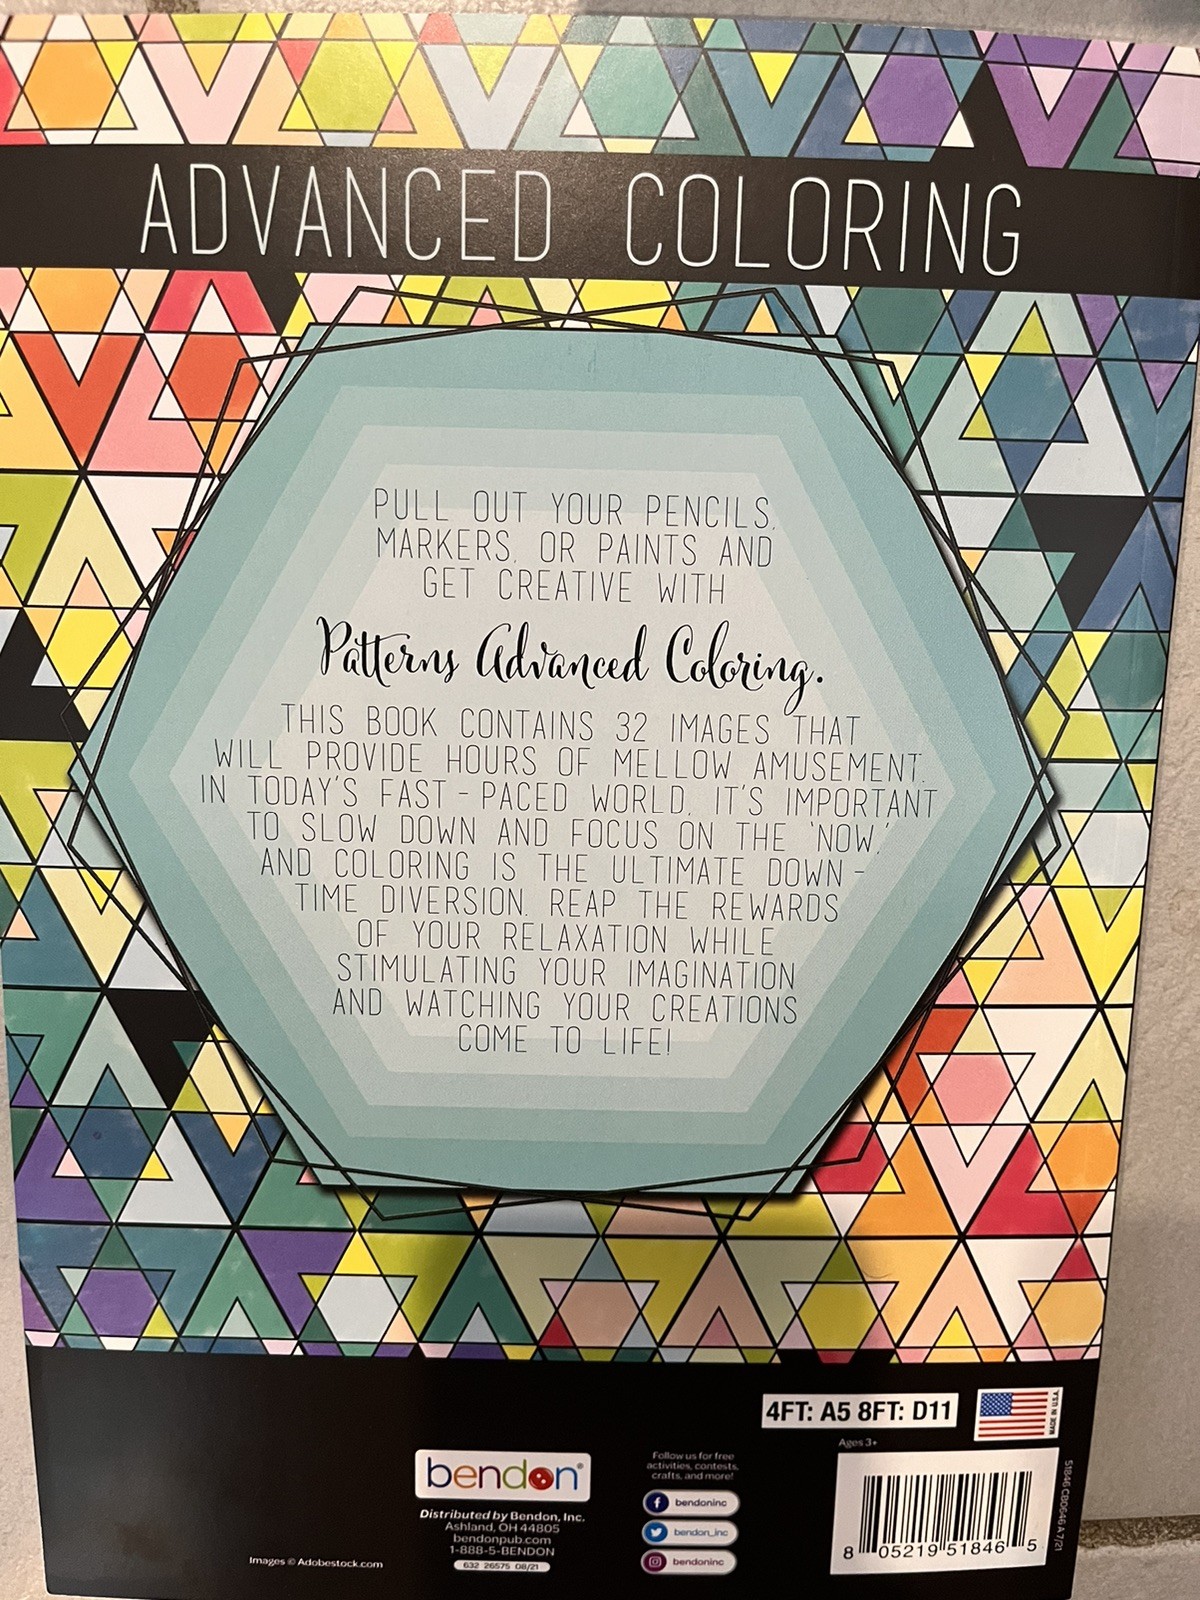 ADVANCED COLORING
PULL OUT YOUR PENCILS,
MARKERS, OR PAINTS AND
GET CREATIVE WITH
Patterns Advanced Coloring.
THIS BOOK CONTAINS 32 IMAGES THAT
WILL PROVIDE HOURS OF MELLOW AMUSEMENT.
IN TODAY'S FAST - PACED WORLD, IT'S IMPORTANT
TO SLOW DOWN AND FOCUS ON THE 'NOW,'
AND COLORING IS THE ULTIMATE DOWN -
TIME DIVERSION. REAP THE REWARDS
OF YOUR RELAXATION WHILE
STIMULATING YOUR IMAGINATION
AND WATCHING YOUR CREATIONS
COME TO LIFE!
4FT: A5 8FT: D11
MADE IN U.S.A.
bendon®
Distributed by Bendon, Inc.
Ashland, OH 44805
bendonpub.com
1-888-5-BENDON
632 26575 08/21
Images © Adobestock.com
Follow us for free
activities, contests,
crafts, and more!
bendoninc
bendon_inc
bendoninc
Ages 3+
8 05219 51846 5
51846 CB0646 A 7/21